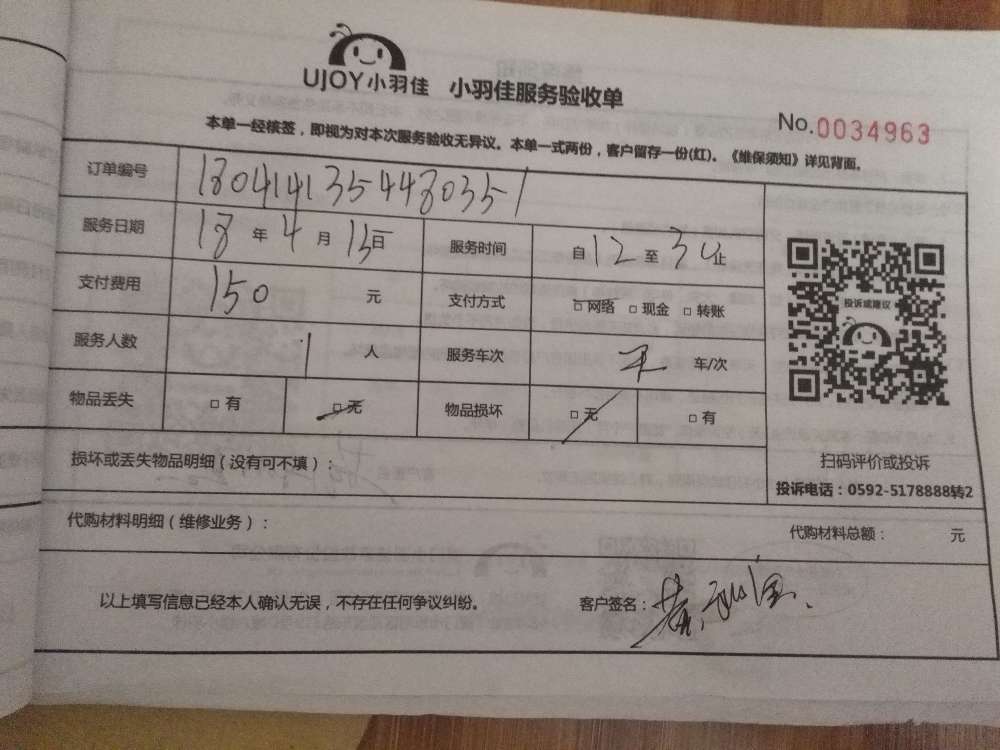 UJOY小羽佳 小羽佳服务验收单
No.0034963
本单一经核签，即视为对本次服务验收无异议。本单一式两份，客户留存一份(红)。《维保须知》详见背面。
订单编号 18041413544803551
服务日期 18年4月15日 服务时间 自12至3止
支付费用 150元 支付方式 □网络 □现金 □转账
服务人数 1人 服务车次 车/次
物品丢失 □有 □无 物品损坏 □无 □有
投诉或建议
扫码评价或投诉
投诉电话：0592-5178888转2
损坏或丢失物品明细（没有可不填）：
代购材料明细（维修业务）： 代购材料总额： 元
以上填写信息已经本人确认无误，不存在任何争议纠纷。 客户签名：